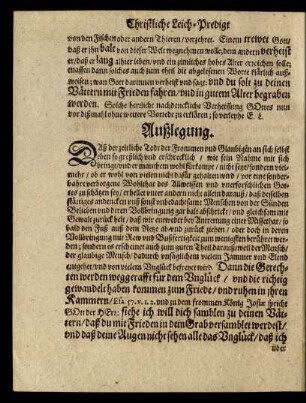 Christliche Leich-Predigt
von den Fischen oder andern Thieren / verzehre. Einem trewet Gott /
daß er ihn bald von dieser Welt wegnehmen wolle; dem andern verheist
er / daß er lang alhier leben / und ein zimliches hohes Alter erreichen solle;
massen dann solches auch zum theil die abgelesenen Worte klärlich auß-
weisen; wan Gott darinnen verheist und sage: und du solt zu deinen
Vätern mit Frieden fahren / und in gutem Alter begraben
werden. Solche herrliche nachdenckliche Verheissung GOttes nun
vor dißmahl ohne weitere Vorrede zu erklären; so verleyhe E. L.
Außlegung.
DAß der zeitliche Tode der Frommen und Glaubigen an sich selbst
eben so greßlich und erschrecklich / wie sein Nahme mit sich
bringe / und er manchem wohl fürkompt / nicht seye / sondern viel-
mehr / ob er wohl von vielen nicht dafür gehalten wird / vor eine sonder-
bahre verborgene Wohlthat des Allweisen und unerforschlichen Got-
tes zu schätzen sey; erhellet unter andern nicht allein darauß / daß derselben
stätiges andencken viel sonst unbedachtsame Menschen von der Sünden
Belieben und deren Vollbringung gar balt abschröckt / und gleichsam mit
Gewalt zurück helt / daß wie entweder bey Antrettung einer Missethat / so
bald den Fuß auß dem Wege ab- und zurück ziehen / oder doch in deren
Vollbringung mit Rew und Bußfertigkeit zum wenigsten beröhret wer-
den; sondern es erscheinet auch zum guten Theil darauß / weil der Mensch /
der glaubige Mensch / dadurch unsäglichem vielem Jammer und Elend
entgehet / und von vielem Unglück befreyet wird. Dann die Gerech-
ten werden weggerafft für dem Unglück / und die richtig
gewandelt haben kommen zum Friede / und ruhen in jhren
Kammern / Esa. 57. v. 1. 2. und zu dem frommen König Josia spricht
GOtt der HErr: siehe ich will dich samblen zu deinen Vät-
tern / daß du mit Frieden in dein Grab versamblet werdest /
und daß deine Augen nicht sehen alle das Unglück / daß ich
über